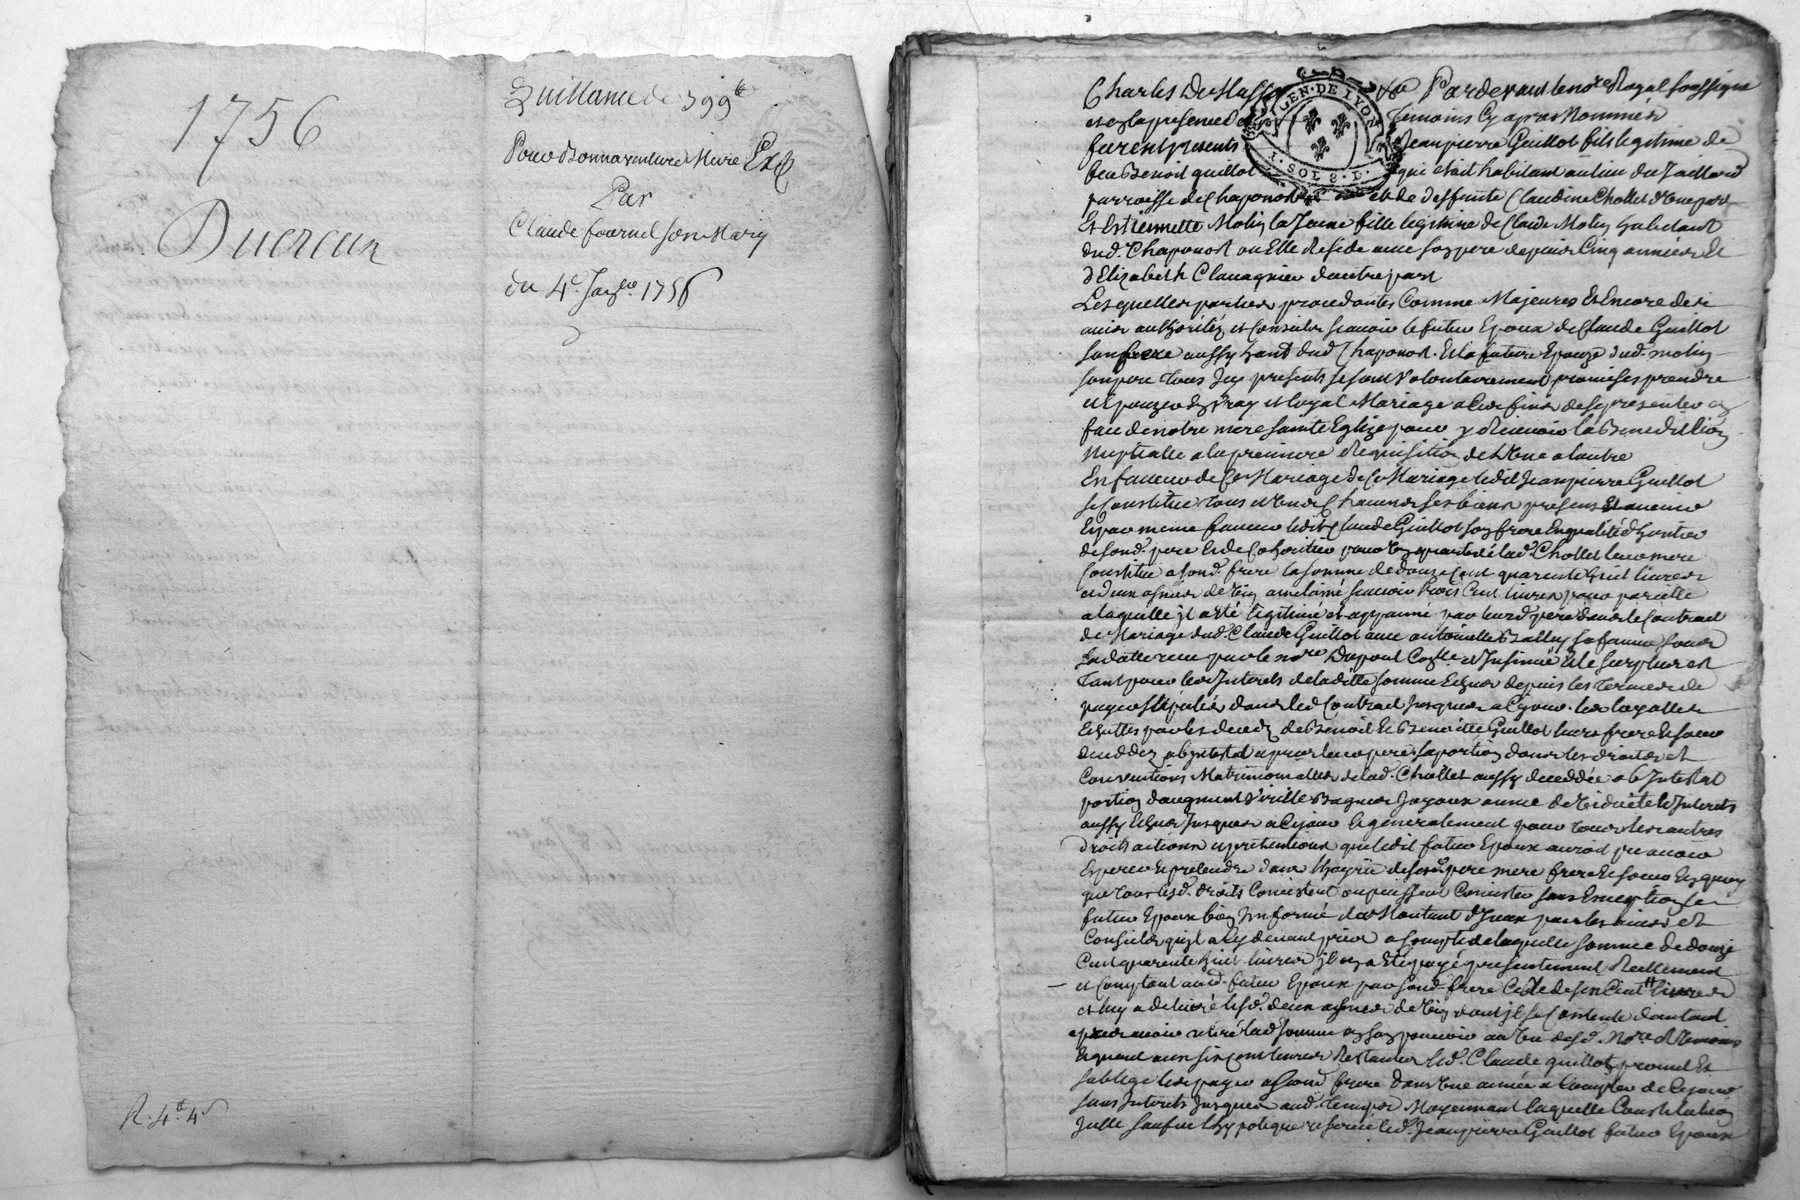 1756
Ducreux
Quittance de 399 lt
Pour Bonnaventure Mure
Par
Claude fournel son Mary
du 4e Janv 1756
R. 4 lt 4 s
GEN. DE LYON
SOLS. D.
Par devant le no.re Royal soussigné
et en la présence des Temoins Cy apres Nommés
furent presents Jeanpierre Guillot fils legitime de
feu Benoit guillot qui etait habitant au lieu du
parroisse de Chaponost et de deffunte Claudine Chollet d'Une part
Et Estiennette Molin la Jeune fille legitime de Claude Molin habitant
dud. Chaponost ou Elle Reside avec son pere depuis Cinq années et
d'Elizabeth Clavagnier d'autre part
Lesquelles parties procedantes Comme Majeures Et Encore de
authorités et Conseils scavoir le futur Epoux de Claude Guillot
son frere aussy hant dud Chaponost. Et la future Epouze dud. molin
son pere tous Icy presents se sont Volontairement promis se prendre
et Epouzer En Vray et loyal Mariage a Ces fins de se presenter en
face de notre mere sainte Eglize pour y Recevoir la Benediction
Nuptialle a la premiere Requisition de L'Une a lautre
En faveur de Ce Mariage de Ce Mariage ledit Jeanpierre Guillot
se Constitue tous et Uns Chacuns ses biens presens Et avenir
Et par meme faveur ledit Claude Guillot son frere En qualité d'heritier
de sond. pere Et de Coheritier pour Un quart de lad. Chollet leur mere
Constitue a sond. frere la somme de douze Cent quarente huit livres
scavoir trois Cent livres pour
a laquelle Il a été legitimé et appanné par leurd. pere dans le Contract
de Mariage dud. Claude Guillot avec antoinette Bally sa femme sous
sa datte receu par le no.re Dupont Et le surplus est
Tant pour les Interets de laditte somme Echus depuis les termes de
payes stipulés dans led Contract Jusques a Ce jour. les legattes
Echuttes par les deces de Benoit Et Benoitte Guillot leurs frere Et soeur
decedez abintestat apres leur pere sa portion dans les droits et
Conventions Matrimonialles de lad. Chollet aussy decedée ab Intestat
portion d'augment Virille Bagues Joyaux Interets
aussy Echus Jusques a Ce jour Et generalement pour tous les autres
droits actions et prétentions que ledit futur Epoux auroit pu avoir
Esperer Et pretendre dans de sesd. pere mere frere Et soeur En quoy
que tous lesd. droits Consistent ou puissent Consister sans Exception
futur Epoux bien Informé du Montant d'Iceux par les avis et
Conseils qu'il a Cy devant pris a compte de laquelle somme de douze
Cent quarente huit livres Il en a Eté payé presentement Reellement
et Comptant aud. futur Epoux par sond. frere Celle de six Cent livres
et luy a delivré lesd. deux dont Il se Contente d'autant
apres avoir retiré lad somme En son pouvoir au Vu desd. no.re et Temoins
Et quant aux six cent livres Restantes led. Claude guillot promet Et
soblige les payer a sond frere dans Une année a Compter de Ce jour
sans Interets Jusques aud. temps Moyennant laquelle Constitution
Julle sauf hypoteque reservée led. Jeanpierre Guillot futur Epoux